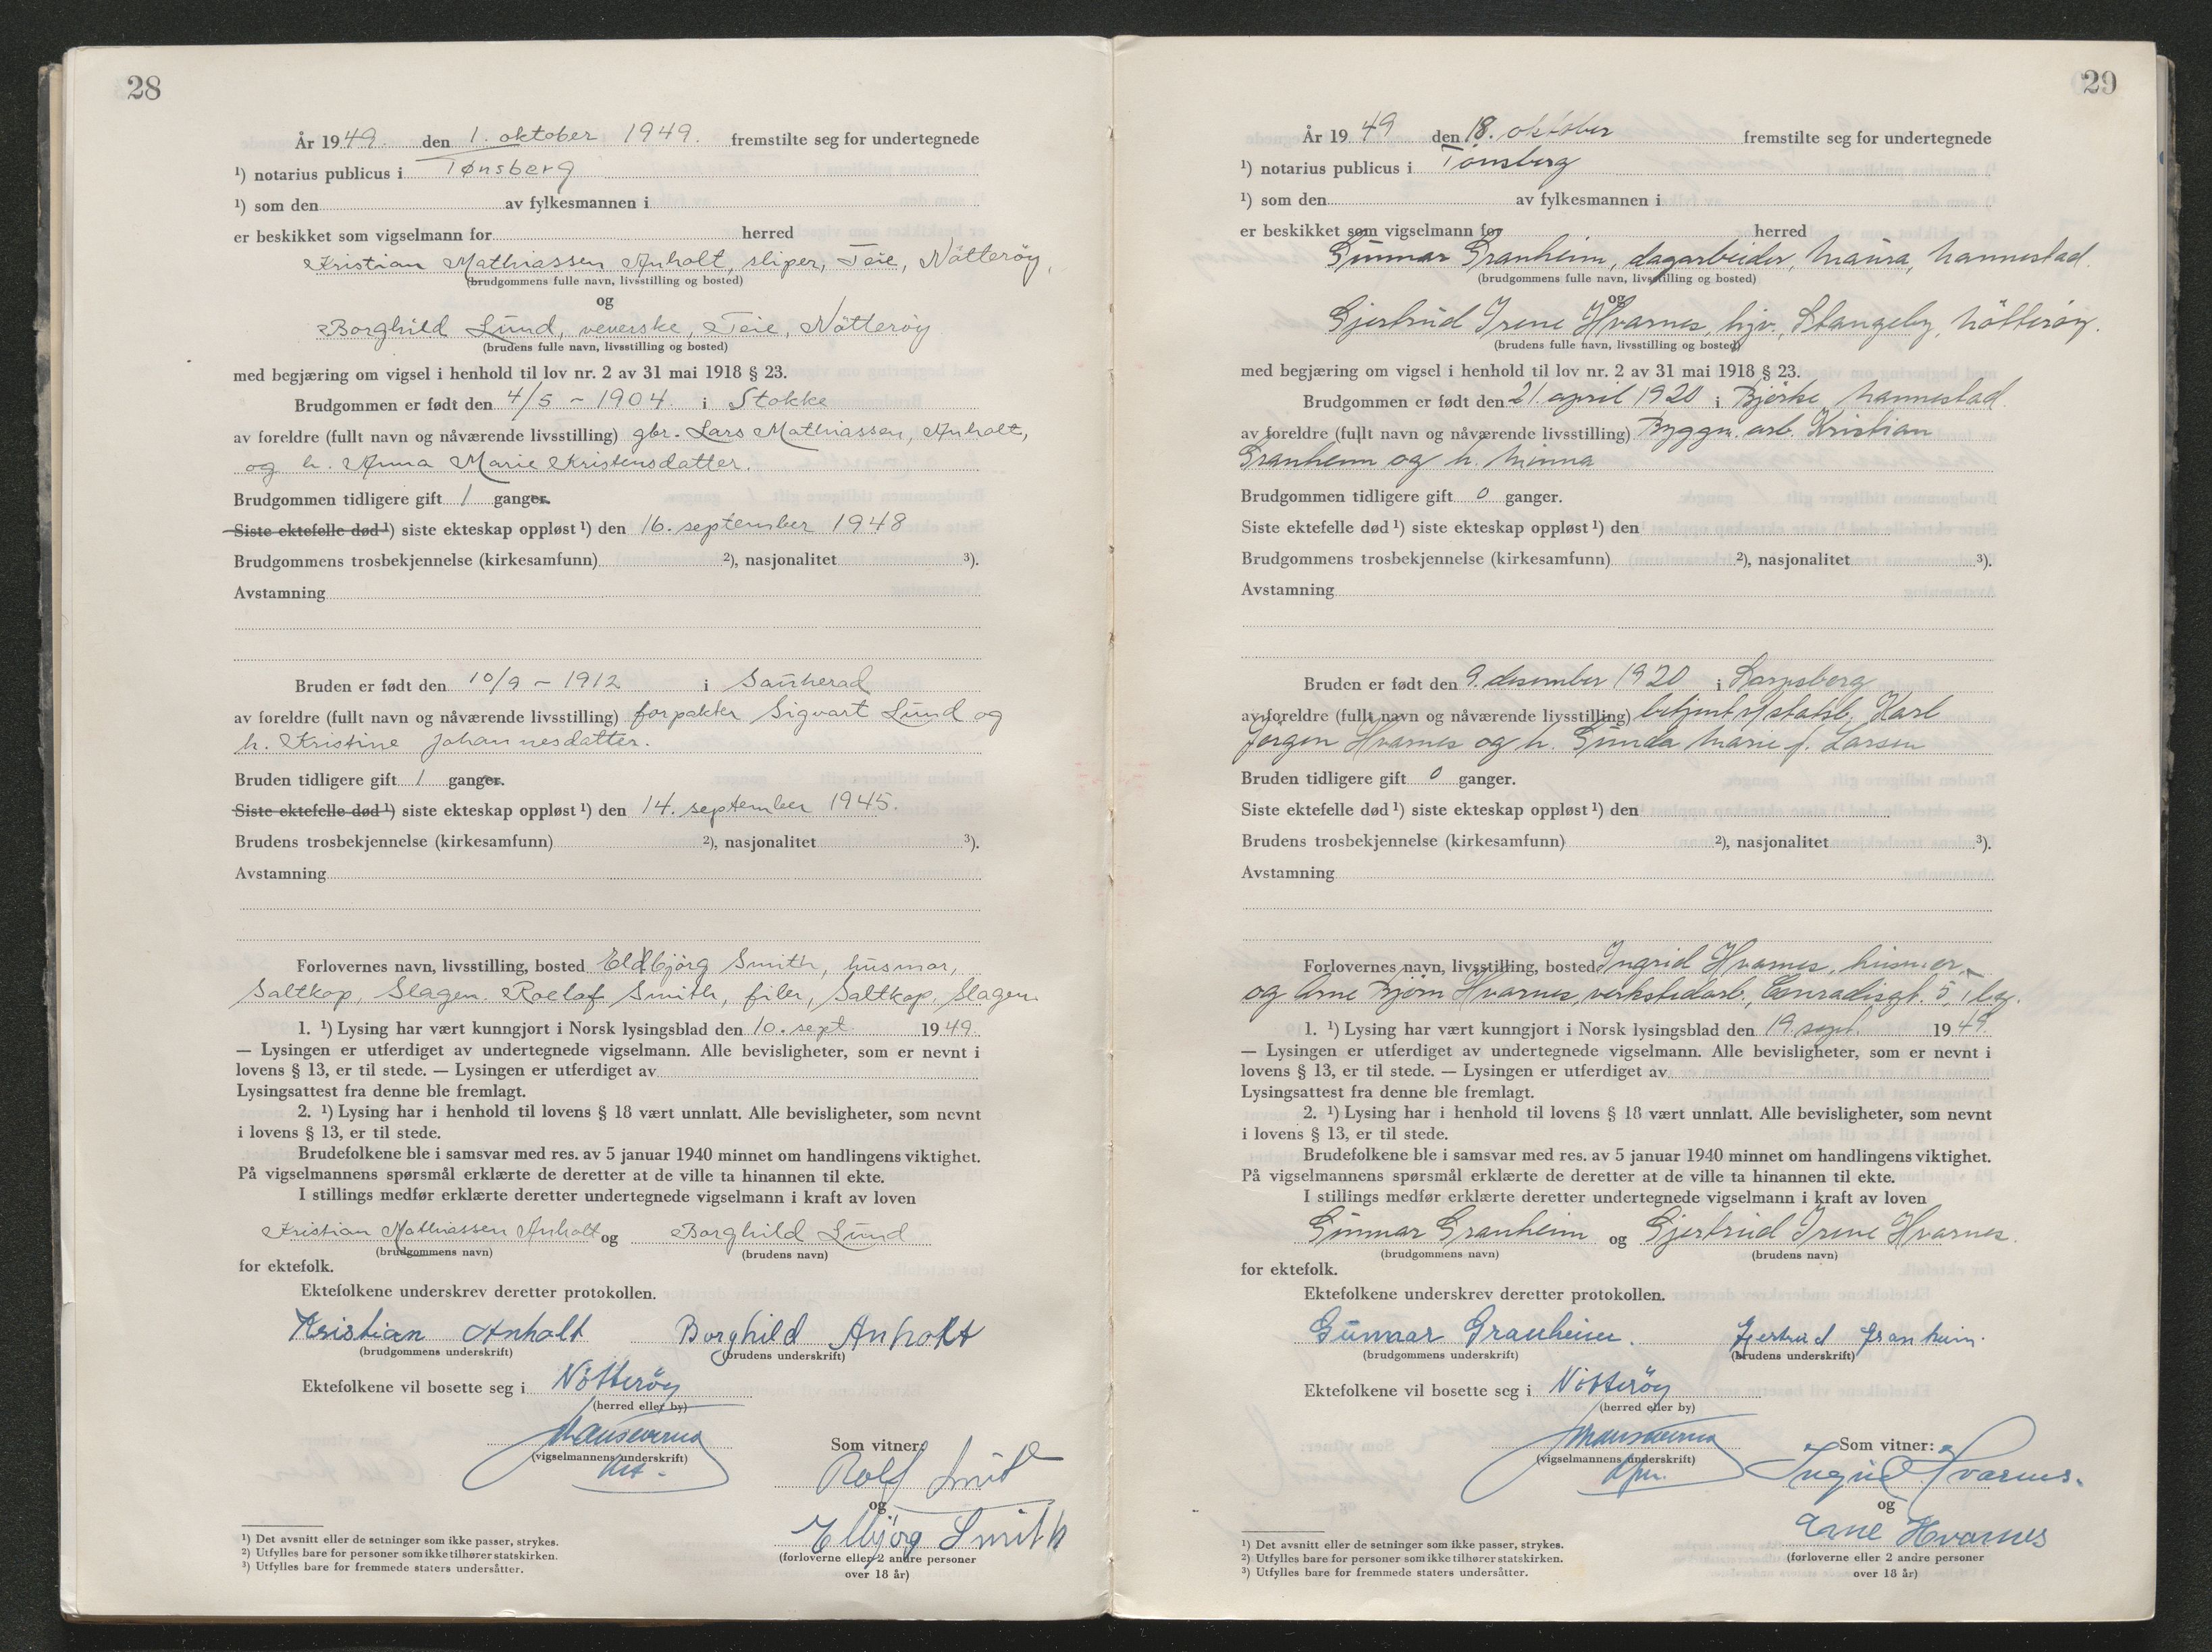 28
År 1949. den 1. oktober 1949. fremstilte seg for undertegnede
¹) notarius publicus i Tønsberg
¹) som den av fylkesmannen i
er beskikket som vigselmann for herred
Kristian Mathiassen Anholt, sliper, Teie, Nötteröy,
(brudgommens fulle navn, livsstilling og bosted)
og
Borghild Lund, veverske, Teie, Nötteröy
(brudens fulle navn, livsstilling og bosted)
med begjæring om vigsel i henhold til lov nr. 2 av 31 mai 1918 § 23.
Brudgommen er født den 4/5 - 1904. i Stokke
av foreldre (fullt navn og nåværende livsstilling) gbr. Lars Mathiassen, Anholt,
og h. Anna Marie Kristensdatter.
Brudgommen tidligere gift 1 ganger.
Siste ektefelle død ¹) siste ekteskap oppløst ¹) den 16. september 1948
Brudgommens trosbekjennelse (kirkesamfunn) ²), nasjonalitet ³).
Avstamning
Bruden er født den 10/9 - 1912 i Sauherad
av foreldre (fullt navn og nåværende livsstilling) forpakter Sigvart Lund og
h. Kristine Johannesdatter.
Bruden tidligere gift 1 ganger.
Siste ektefelle død ¹) siste ekteskap oppløst ¹) den 14. september 1945.
Brudens trosbekjennelse (kirkesamfunn) ²), nasjonalitet ³).
Avstamning
Forlovernes navn, livsstilling, bosted Eldbjörg Smith, husmor,
Saltkop, Slagen. Roelof Smith, filer, Saltkop, Slagen.
1. ¹) Lysing har vært kunngjort i Norsk lysingsblad den 10. sept. 1949.
— Lysingen er utferdiget av undertegnede vigselmann. Alle bevisligheter, som er nevnt i
lovens § 13, er til stede. — Lysingen er utferdiget av
Lysingsattest fra denne ble fremlagt.
2. ¹) Lysing har i henhold til lovens § 18 vært unnlatt. Alle bevisligheter, som nevnt
i lovens § 13, er til stede.
Brudefolkene ble i samsvar med res. av 5 januar 1940 minnet om handlingens viktighet.
På vigselmannens spørsmål erklærte de deretter at de ville ta hinannen til ekte.
I stillings medfør erklærte deretter undertegnede vigselmann i kraft av loven
Kristian Mathiassen Anholt og Borghild Lund
(brudgommens navn) (brudens navn)
for ektefolk.
Ektefolkene underskrev deretter protokollen.
Kristian Anholt Borghild Anholt
(brudgommens underskrift) (brudens underskrift)
Ektefolkene vil bosette seg i Nötteröy
(herred eller by)
(vigselmannens underskrift)
Som vitner:
Rolf Smit
og
Elbjörg Smith
(forloverne eller 2 andre personer
over 18 år)
¹) Det avsnitt eller de setninger som ikke passer, strykes.
²) Utfylles bare for personer som ikke tilhører statskirken.
³) Utfylles bare for fremmede staters undersåtter.
29
År 1949 den 18. oktober fremstilte seg for undertegnede
¹) notarius publicus i Tönsberg
¹) som den av fylkesmannen i
er beskikket som vigselmann for herred
Gunnar Granheim, dagarbeider, Maura, Nannestad.
(brudgommens fulle navn, livsstilling og bosted)
og
Gjertrud Irene Hvarnes, hjv., Stangeby, Nötteröy.
(brudens fulle navn, livsstilling og bosted)
med begjæring om vigsel i henhold til lov nr. 2 av 31 mai 1918 § 23.
Brudgommen er født den 21. april 1920 i Björke, Nannestad.
av foreldre (fullt navn og nåværende livsstilling) Byggn. arb. Kristian
Granheim og h. Minna
Brudgommen tidligere gift 0 ganger.
Siste ektefelle død ¹) siste ekteskap oppløst ¹) den
Brudgommens trosbekjennelse (kirkesamfunn) ²), nasjonalitet ³).
Avstamning
Bruden er født den 9. desember 1920 i Sarpsborg
av foreldre (fullt navn og nåværende livsstilling) betjent v/statsb. Karl
Jörgen Hvarnes og h. Gunda Marie f. Larsen
Bruden tidligere gift 0 ganger.
Siste ektefelle død ¹) siste ekteskap oppløst ¹) den
Brudens trosbekjennelse (kirkesamfunn) ²), nasjonalitet ³).
Avstamning
Forlovernes navn, livsstilling, bosted Ingrid Hvarnes, husmor,
og Arne Björn Hvarnes, verkstedarb., Conradisgt. 5, Tbg.
1. ¹) Lysing har vært kunngjort i Norsk lysingsblad den 19. sept. 1949
— Lysingen er utferdiget av undertegnede vigselmann. Alle bevisligheter, som er nevnt i
lovens § 13, er til stede. — Lysingen er utferdiget av
Lysingsattest fra denne ble fremlagt.
2. ¹) Lysing har i henhold til lovens § 18 vært unnlatt. Alle bevisligheter, som nevnt
i lovens § 13, er til stede.
Brudefolkene ble i samsvar med res. av 5 januar 1940 minnet om handlingens viktighet.
På vigselmannens spørsmål erklærte de deretter at de ville ta hinannen til ekte.
I stillings medfør erklærte deretter undertegnede vigselmann i kraft av loven
Gunnar Granheim og Gjertrud Irene Hvarnes.
(brudgommens navn) (brudens navn)
for ektefolk.
Ektefolkene underskrev deretter protokollen.
Gunnar Granheim. Gjertrud Granheim.
(brudgommens underskrift) (brudens underskrift)
Ektefolkene vil bosette seg i Nötteröy
(herred eller by)
(vigselmannens underskrift)
Som vitner:
Ingrid Hvarnes.
og
Arne Hvarnes
(forloverne eller 2 andre personer
over 18 år)
¹) Det avsnitt eller de setninger som ikke passer, strykes.
²) Utfylles bare for personer som ikke tilhører statskirken.
³) Utfylles bare for fremmede staters undersåtter.